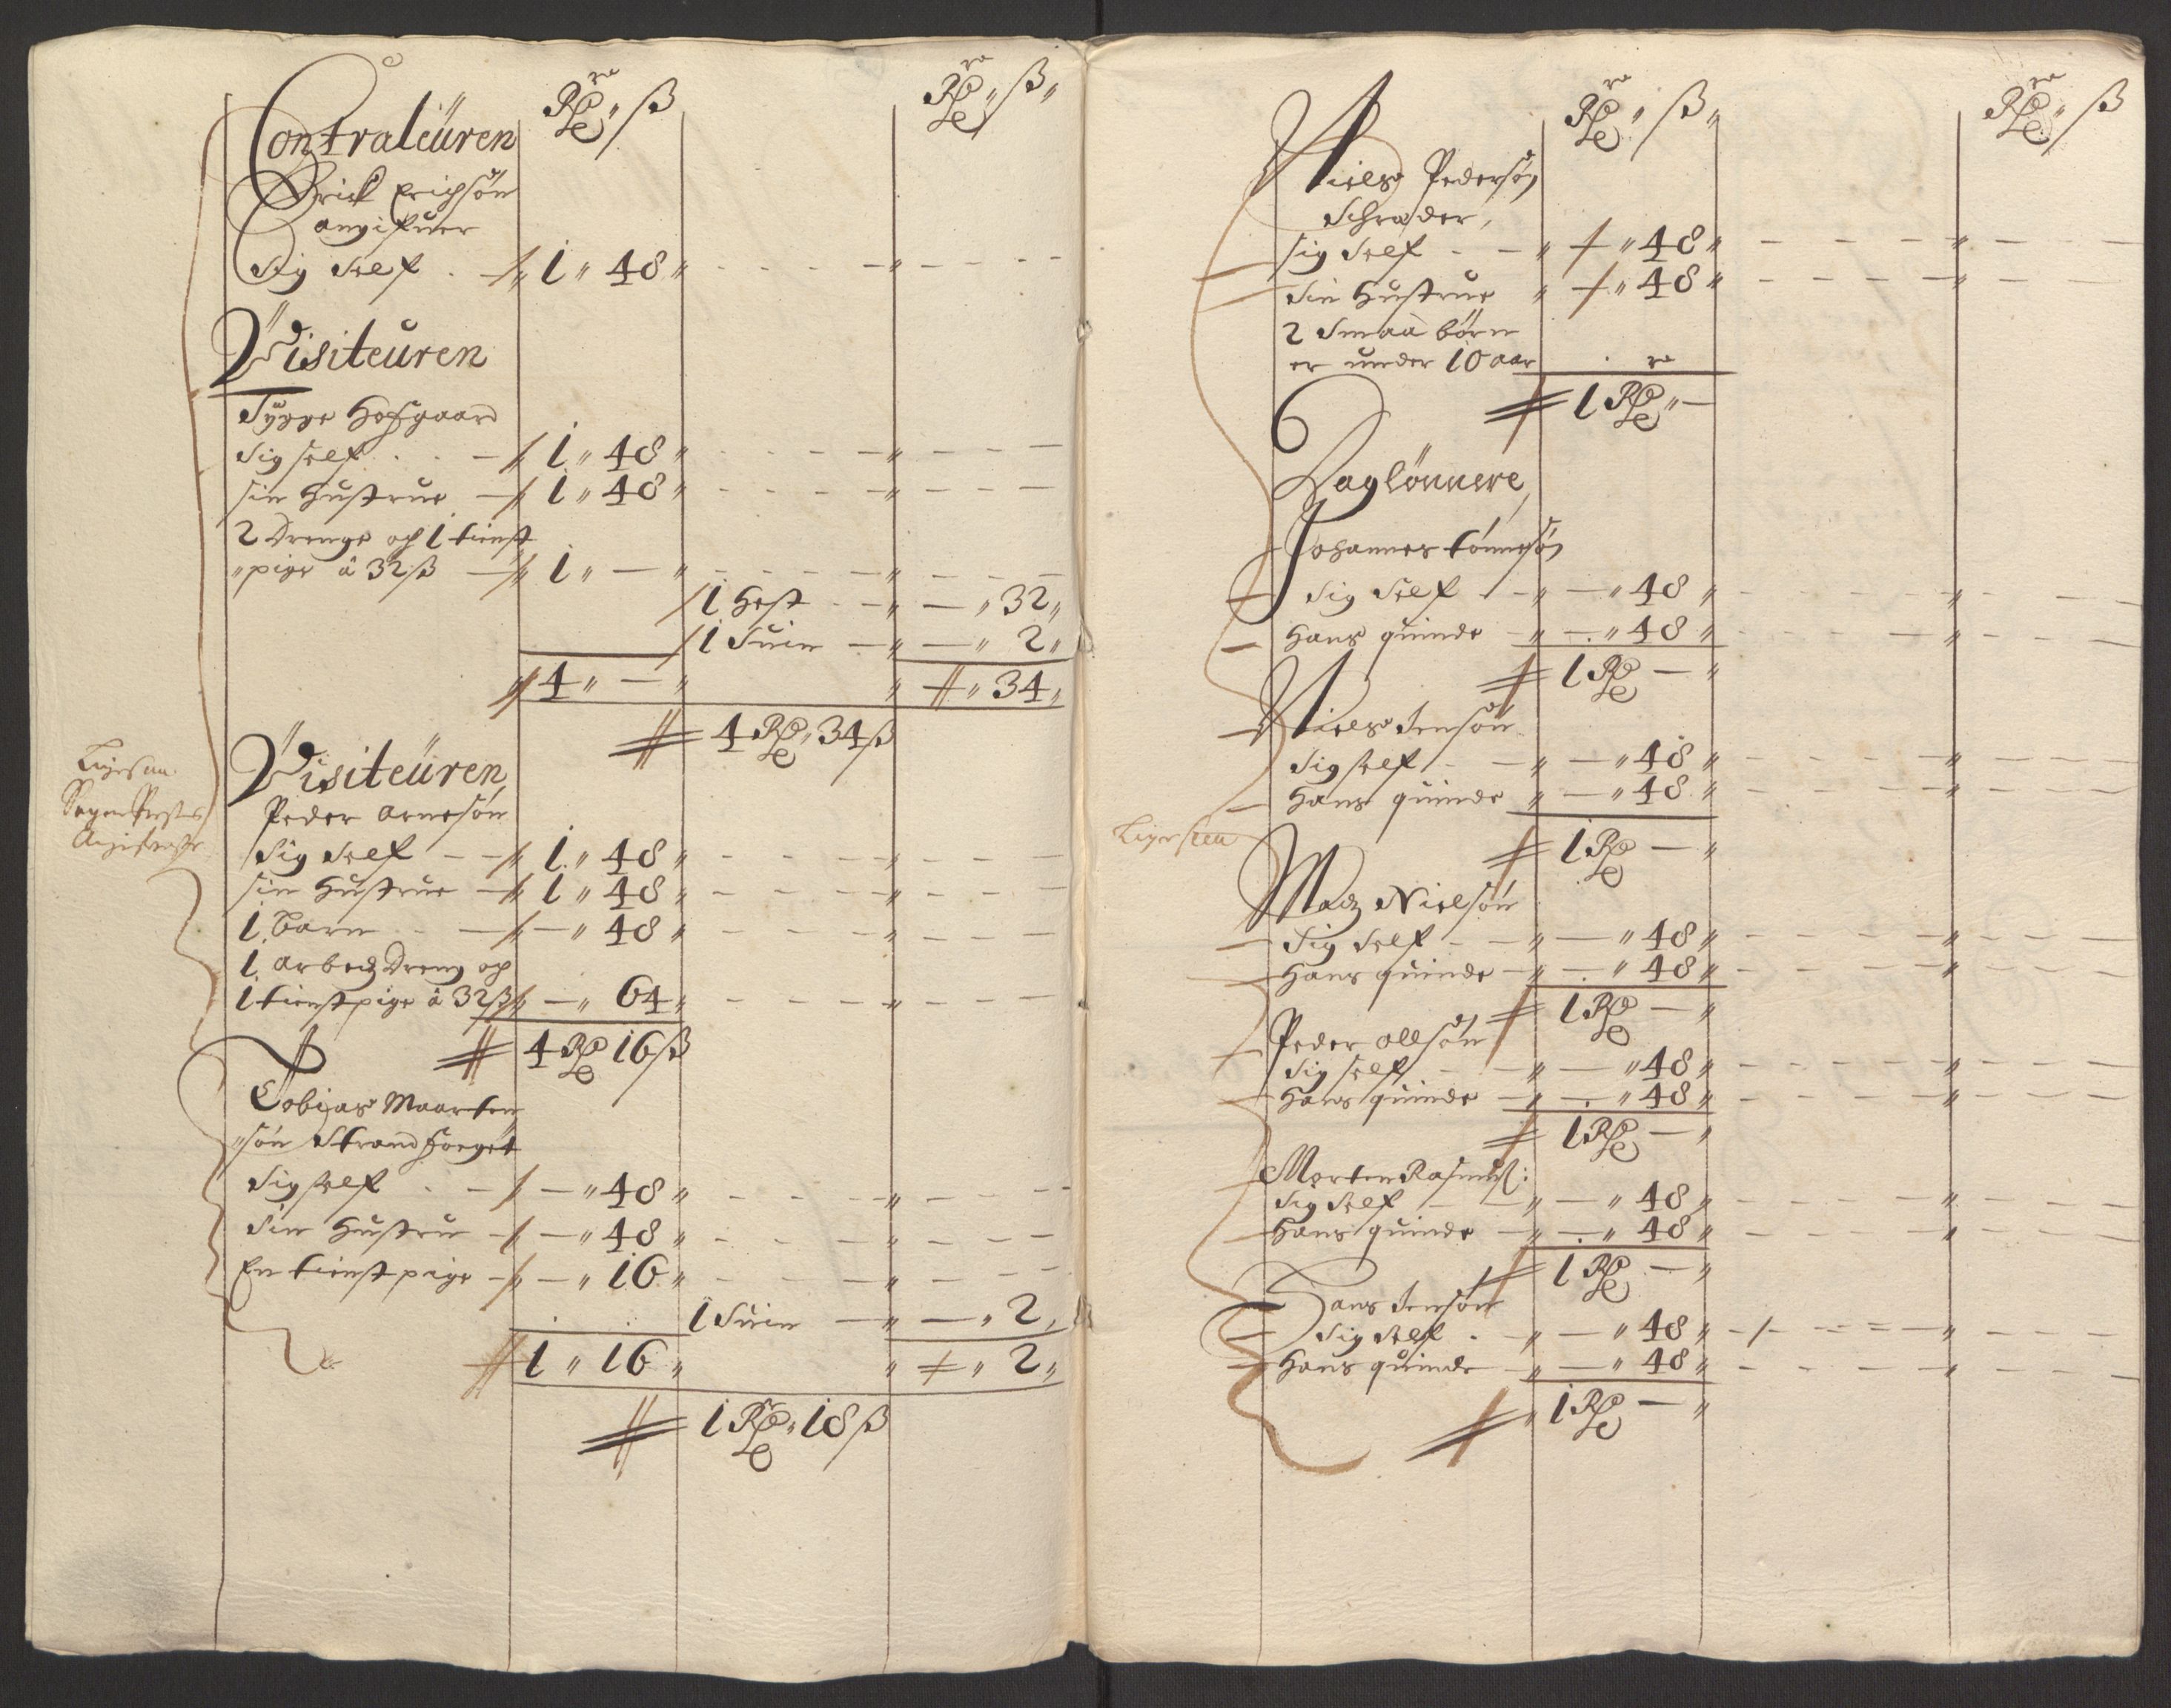 Rdr ß Rdr ß
Contraleüren
Erick Erichsön
angifuer
Sig Self - 1 " 48 "
Visiteüren
Tÿgge Hofgaard
Sig self - 1 " 48 "
sin Hustrue - 1 " 48 "
2 Drenge og 1 tienst
"pige à 32 ß - 1 " - "
1 Hest - " - " 32 "
1 Suin - " - " 2 "
4 " - " " - " 34 "
4 Rdr 34 ß
Visiteüren
Peder Arnesön
Sig Self - 1 " 48 "
sin Hustrue - 1 " 48 "
1 Barn - - " 48 "
1 arbeidz Dreng og
1 tienstpige à 32 ß - " 64 "
4 Rdr 16 ß
Tobias Maarten
"sön Strand
Sig self - - " 48 "
Sin Hustru - - " 48 "
En tienstpige - - " 16 "
1 Suin - " - " 2 "
1 " 16 " " - " 2 "
1 Rdr " 18 ß
Rdr " ß " Rdr " ß
Niels Pedersön
Schrader,
sig Self - - " - " 48 "
Sin Hustrue " - " 48 "
2 Smaa börn
er under 10 aar
1 Rdr " -
Daglönnere
Johannes tönnesön
Sig Self - " - " 48 "
Hans quinde - " - " 48 "
1 Rdr - "
Niels Jensön
Sig self - " - " 48 "
Hans quinde " - " 48 "
1 Rdr - "
Madz Nielsön
Sig Self - " - " 48 "
Hans quinde - " - " 48 "
1 Rdr - "
Peder Ollsön
Sig self - " - " 48 "
Hans quinde - " - " 48 "
1 Rdr - "
Morten Rasmuß:
Sig Self - " - " 48 "
Hans quinde - " - " 48 "
1 Rdr - "
Hans Jensön
Sig Self - " - " 48 "
Hans quinde - " - " 48 "
1 Rdr - "